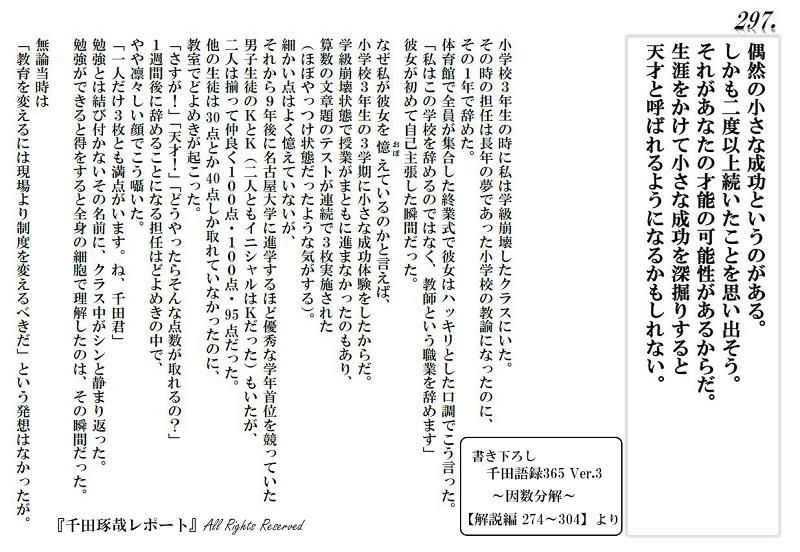 297.
偶然の小さな成功というのがある。
しかも二度以上続いたことを思い出そう。
それがあなたの才能の可能性があるからだ。
生涯をかけて小さな成功を深掘りすると
天才と呼ばれるようになるかもしれない。
書き下ろし
千田語録365 Ver.3
～因数分解～
【解説編 274～304】より
小学校3年生の時に私は学級崩壊したクラスにいた。
その時の担任は長年の夢であった小学校の教諭になったのに、
その1年で辞めた。
体育館で全員が集合した終業式で彼女はハッキリとした口調でこう言った。
「私はこの学校を辞めるのではなく、教師という職業を辞めます」
彼女が初めて自己主張した瞬間だった。
なぜ私が彼女を憶えているのかと言えば、
おぼ
小学校3年生の3学期に小さな成功体験をしたからだ。
学級崩壊状態で授業がまともに進まなかったのもあり、
算数の文章題のテストが連続で3枚実施された
（ほぼやっつけ状態だったような気がする）。
細かい点はよく憶えていないが、
それから9年後に名古屋大学に進学するほど優秀な学年首位を競っていた
男子生徒のKとK（二人ともイニシャルはKだった）もいたが、
二人は揃って仲良く100点・100点・95点だった。
他の生徒は30点とか40点しか取れていなかったのに、
教室でどよめきが起こった。
「さすが！」「天才！」「どうやったらそんな点数が取れるの？」
1週間後に辞めることになる担任はどよめきの中で、
やや凛々しい顔でこう囁いた。
「一人だけ3枚とも満点がいます。ね、千田君」
勉強とは結び付かないその名前に、クラス中がシンと静まり返った。
勉強ができると得をすると全身の細胞で理解したのは、その瞬間だった。
無論当時は
「教育を変えるには現場より制度を変えるべきだ」という発想はなかったが。
『千田琢哉レポート』All Rights Reserved